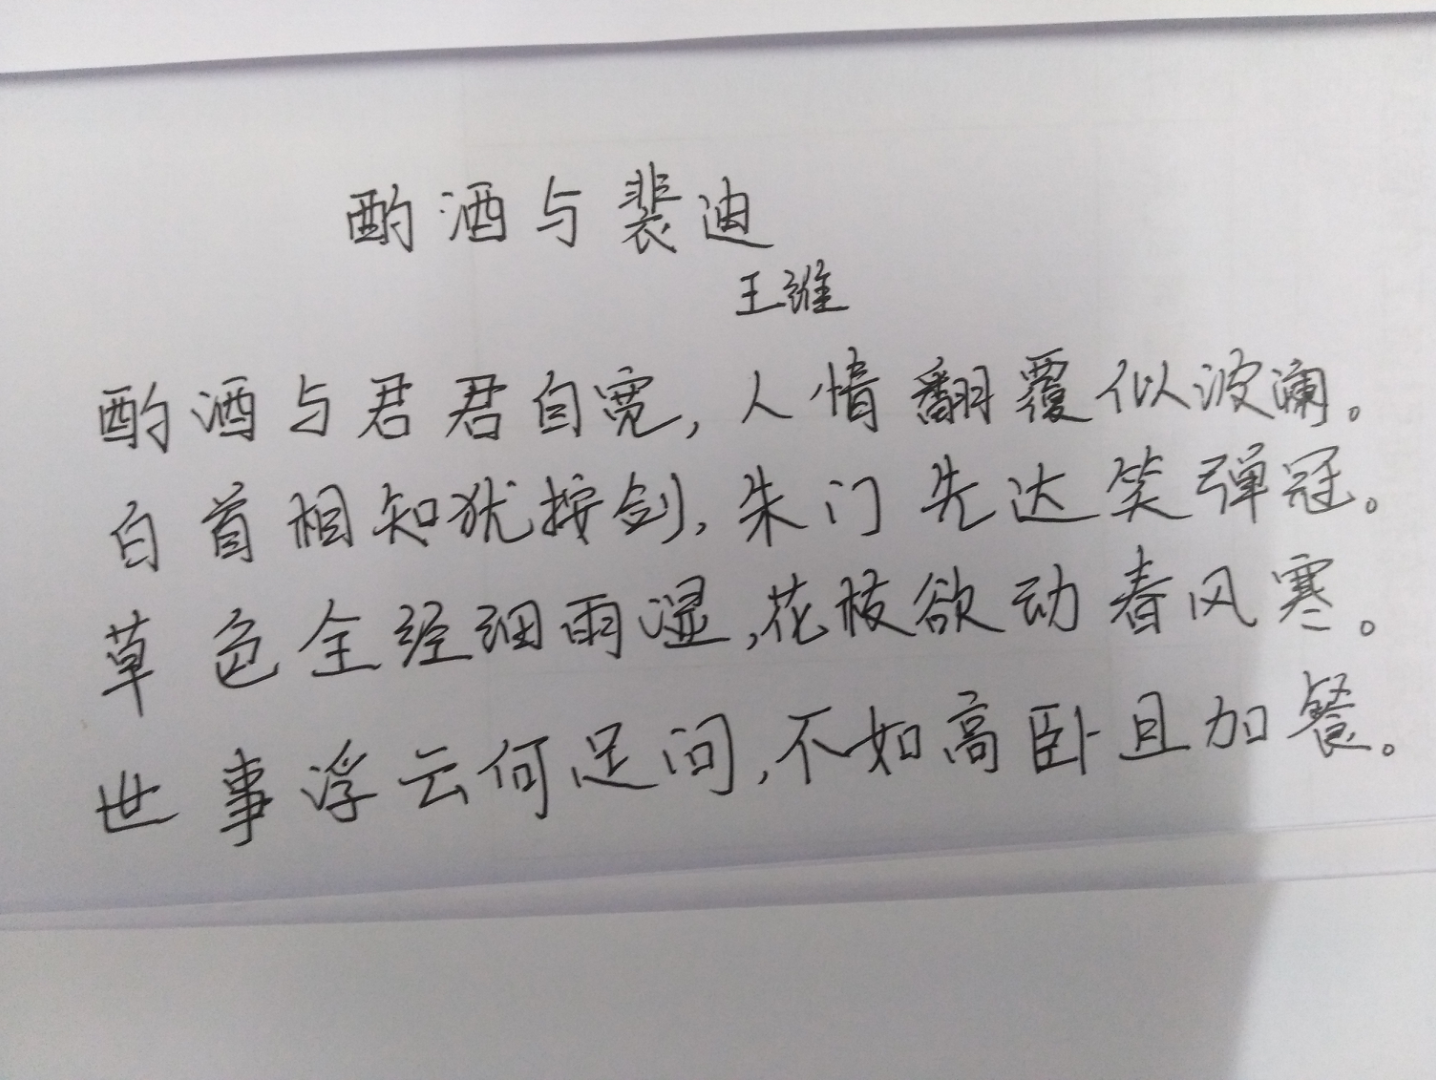 酌酒与裴迪
王维
酌酒与君君自宽,人情翻覆似波澜。
白首相知犹按剑,朱门先达笑弹冠。
草色全经细雨湿,花枝欲动春风寒。
世事浮云何足问,不如高卧且加餐。